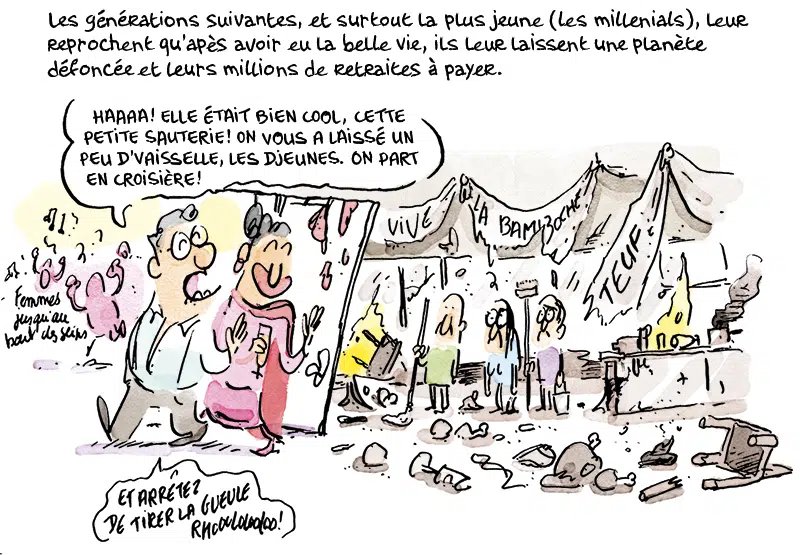 Les générations suivantes, et surtout la plus jeune (les millenials), leur
reprochent qu'apès avoir eu la belle vie, ils leur laissent une planète
défoncée et leurs millions de retraites à payer.
HAAAA! ELLE ÉTAIT BIEN COOL, CETTE
PETITE SAUTERIE! ON VOUS A LAISSÉ UN
PEU D'VAISSELLE, LES DJEUNES. ON PART
EN CROISIÈRE!
VIVE
LA BAMBOCHE
TEUF
Femmes
jusqu'au
bout des seins
ET ARRÊTEZ
DE TIRER LA GUEULE